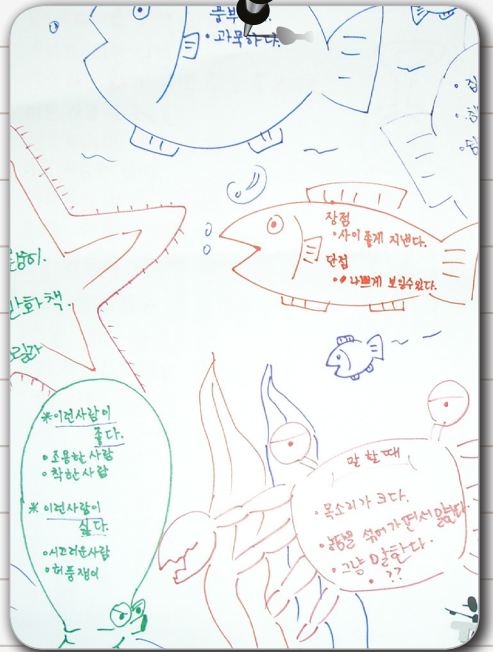 풍부
• 과묵하다.
장점
• 사이 좋게 지낸다.
단점
• 나쁘게 보일수있다.
만화책.
※이런사람이
좋다.
• 조용한사람
• 착한사람
※ 이런사람이
싫다.
• 시끄러운사람
• 허풍쟁이
말할때
• 목소리가 크다.
• 농담을 섞어가면서
• 그냥 말한다.
• ??